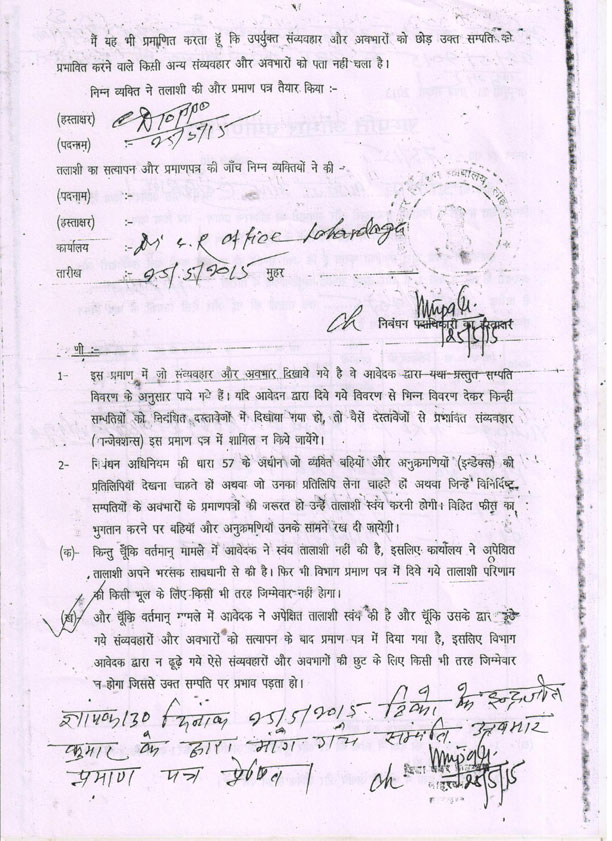 मैं यह भी प्रमाणित करता हूँ कि उपर्युक्त संव्यवहार और अवभारों को छोड़ उक्त सम्पति को
प्रभावित करने वाले किसी अन्य संव्यवहार और अवभारों को पता नहीं चला है।
निम्न व्यक्ति ने तलाशी की और प्रमाण पत्र तैयार किया :-
(हस्ताक्षर)
(पदनाम) :- 25/5/15
तलाशी का सत्यापन और प्रमाणपत्र की जाँच निम्न व्यक्तियों ने की -
(पदनाम)
(हस्ताक्षर) :-
कार्यालय :- Office Lohardaga
तारीख :- 25/5/2015 मुहर
निबंधन पदाधिकारी का हस्ताक्षर
25/5/15
णी :-
1- इस प्रमाण में जो संव्यवहार और अवभार दिखाये गये है वे आवेदक द्वारा यथा प्रस्तुत सम्पति
विवरण के अनुसार पाये गये हैं। यदि आवेदन द्वारा दिये गये विवरण से भिन्न विवरण देकर किन्ही
सम्पतियों को निदंधित दस्तावेजों में दिखाया गया हो, तो वैसें दस्तांवेजों से प्रभावित संव्यवहार
इस प्रमाण पत्र में शामिल न किये जायेंगे।
2- निबंधन अधिनियम की धारा 57 के अधीन जो व्यक्ति बहियों और अनुक्रमणियों (इन्डेक्स) की
प्रतिलिपियाँ देखना चाहते हों अथवा जो उनका प्रतिलिपि लेना चाहते हों अथवा जिन्हें विनिर्दिष्ट
सम्पतियों के अवभारों के प्रमाणपत्रों की जरूरत हो उन्हें तालाशी स्वंय करनी होगी। विहित फीस का
भुगतान करने पर बहियाँ और अनुक्रमणियाँ उनके सामने रख दी जायेगी।
(क)- किन्तु चूँकि वर्तमान् मामले में आवेदक ने स्वंय तालाशी नहीं की है, इसलिए कार्यालय ने अपेक्षित
तालाशी अपने भरसक सावधानी से की है। फिर भी विभाग प्रमाण पत्र में दिये गये तालाशी परिणाम
की किसी भूल के लिए किसी भी तरह जिम्मेवार नहीं होगा।
(ख)- और चूंकि वर्तमान् मामले में आवेदक ने अपेक्षित तालाशी स्वंय की है और चूंकि उसके द्वारा ढूढे
गये संव्यवहारों और अवभारों को सत्यापन के बाद प्रमाण पत्र में दिया गया है, इसलिए विभाग
आवेदक द्वारा न ढूढ़े गये ऐसे संव्यवहारों और अवभागों की छुट के लिए किसी भी तरह जिम्मेवार
न होगा जिससे उक्त सम्पति पर प्रभाव पड़ता हो।
ज्ञापांक 130 दिनांक 25/5/2015
कुमार के द्वारा मांगे गये सम्पति अवभार
प्रमाण पत्र प्रेषित।
25/5/15